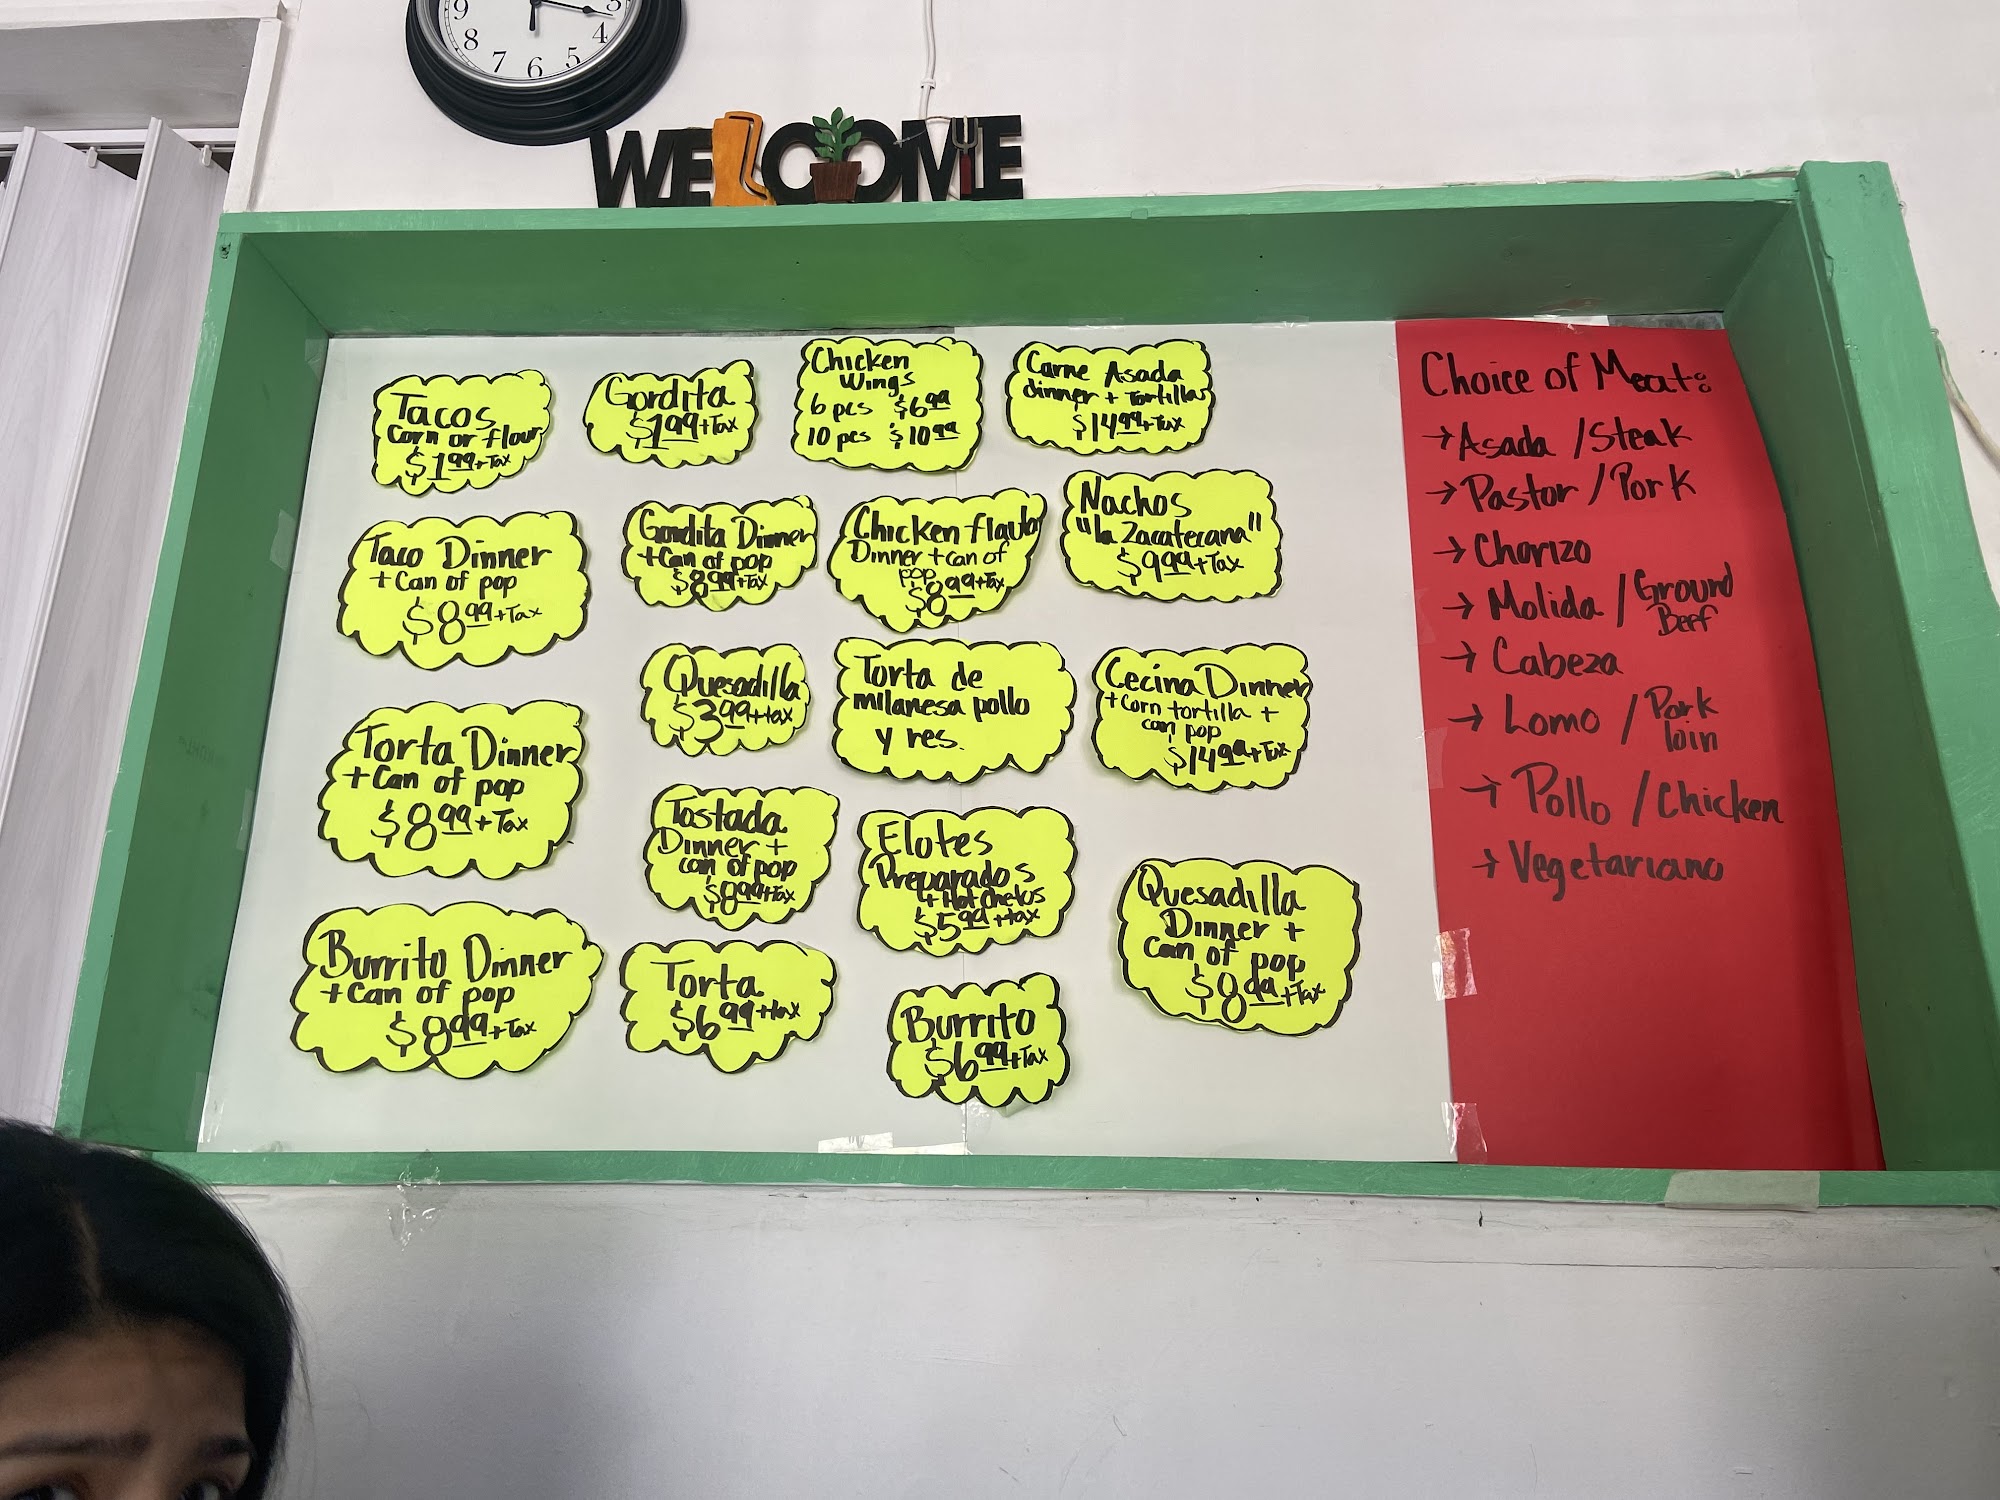 9
3
8
4
7
6
5
WELCOME
Tacos
Corn or flour
$1.99+Tax
Gordita
$1.99+Tax
Chicken
Wings
6 pcs $6.99
10 pcs $10.99
Carne Asada
dinner + Tortillas
$14.99+Tax
Taco Dinner
+ Can of pop
$8.99+Tax
Gordita Dinner
+Can of pop
$8.99+Tax
Chicken
Dinner + can of
pop
$8.99+Tax
Nachos
"La Zacatecana"
$9.99+Tax
Torta Dinner
+ Can of pop
$8.99+Tax
Quesadilla
$3.99+tax
Torta de
milanesa pollo
y res.
Cecina Dinner
+Corn tortilla +
can pop
$14.99+Tax
Tostada
Dinner +
can of pop
$8.99+tax
Elotes
Preparados
+ Hot Chetos
$5.99+tax
Quesadilla
Dinner +
Can of pop
$8.99+Tax
Burrito Dinner
+ Can of pop
$8.99+Tax
Torta
$6.99+tax
Burrito
$6.99+Tax
Choice of Meat:
→ Asada / Steak
→ Pastor / Pork
→ Chorizo
→ Molida / Ground
Beef
→ Cabeza
→ Lomo / Pork
loin
→ Pollo / Chicken
→ Vegetariano